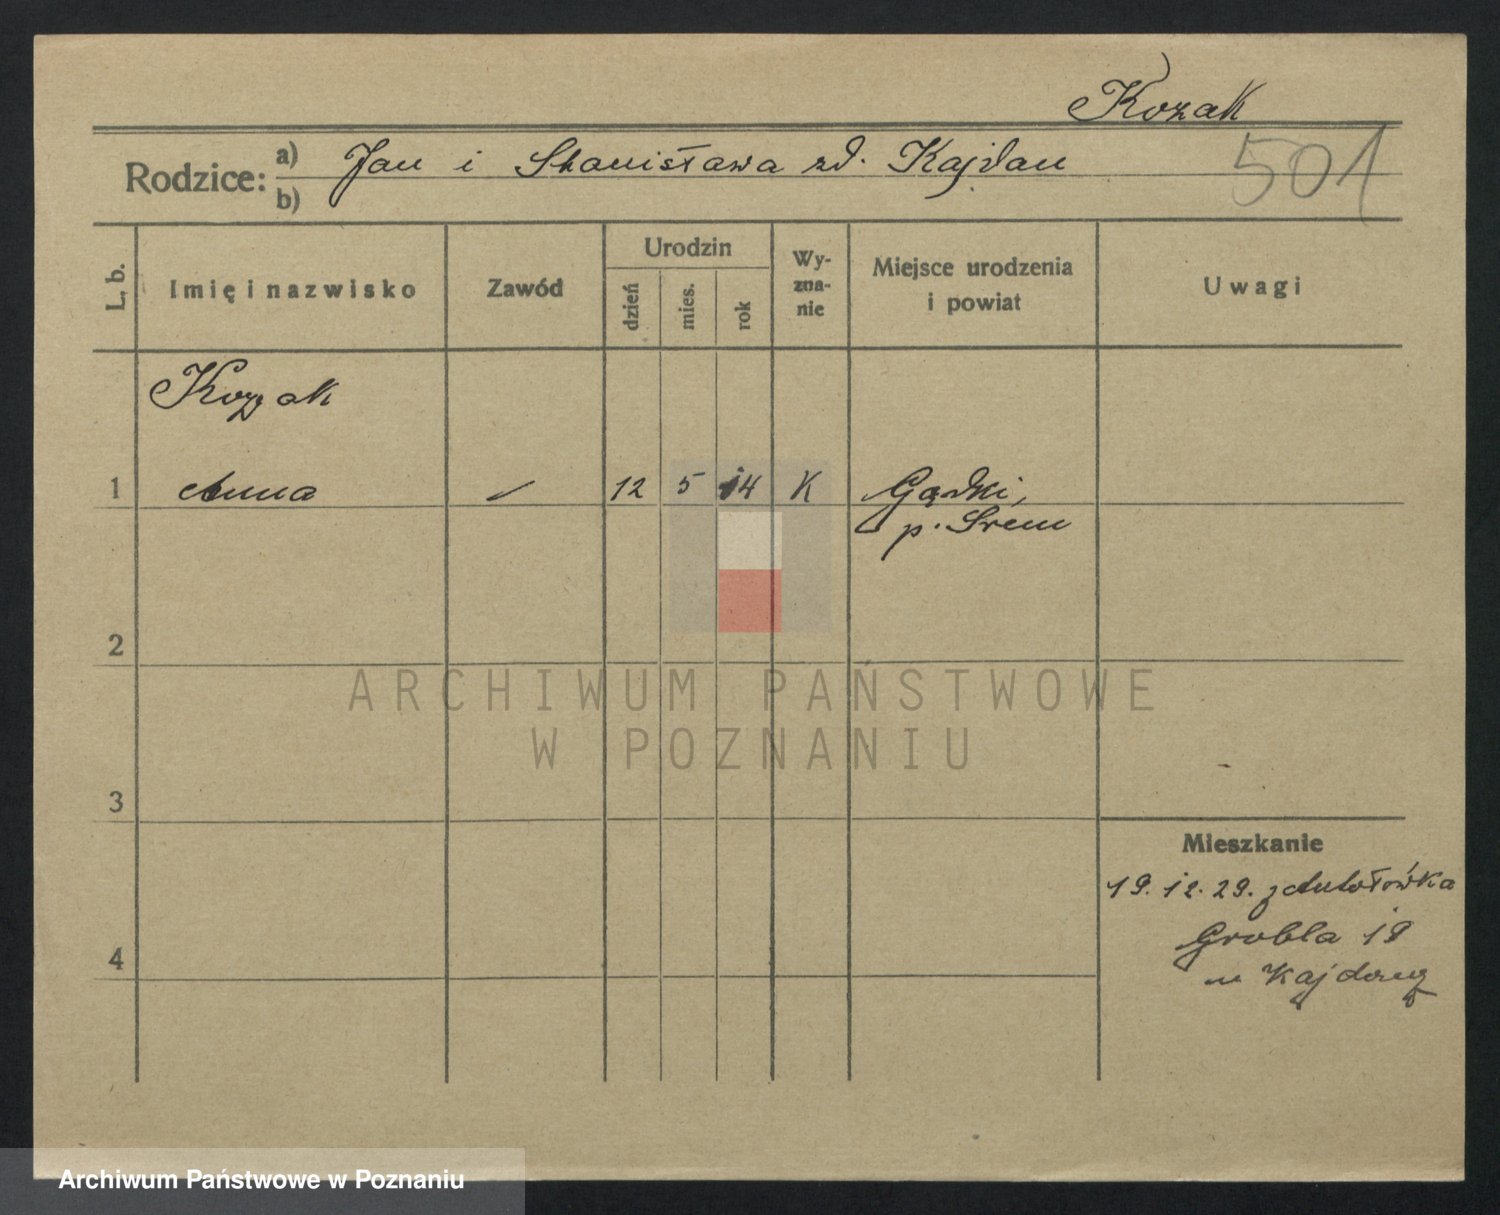 Kozak
Rodzice: a) Jan i Stanisława zd. Kajdan
b)
501
L. b.
Imię i nazwisko
Zawód
Urodzin
dzień
mies.
rok
Wy-
zna-
nie
Miejsce urodzenia
i powiat
Uwagi
Kozak
1 Anna 12 5 14 K Gądki,
p. Srem
2
3
4
Mieszkanie
19. 12. 29. z Antołówka
Grobla 18
u Kajdany
ARCHIWUM PAŃSTWOWE
W POZNANIU
Archiwum Państwowe w Poznaniu